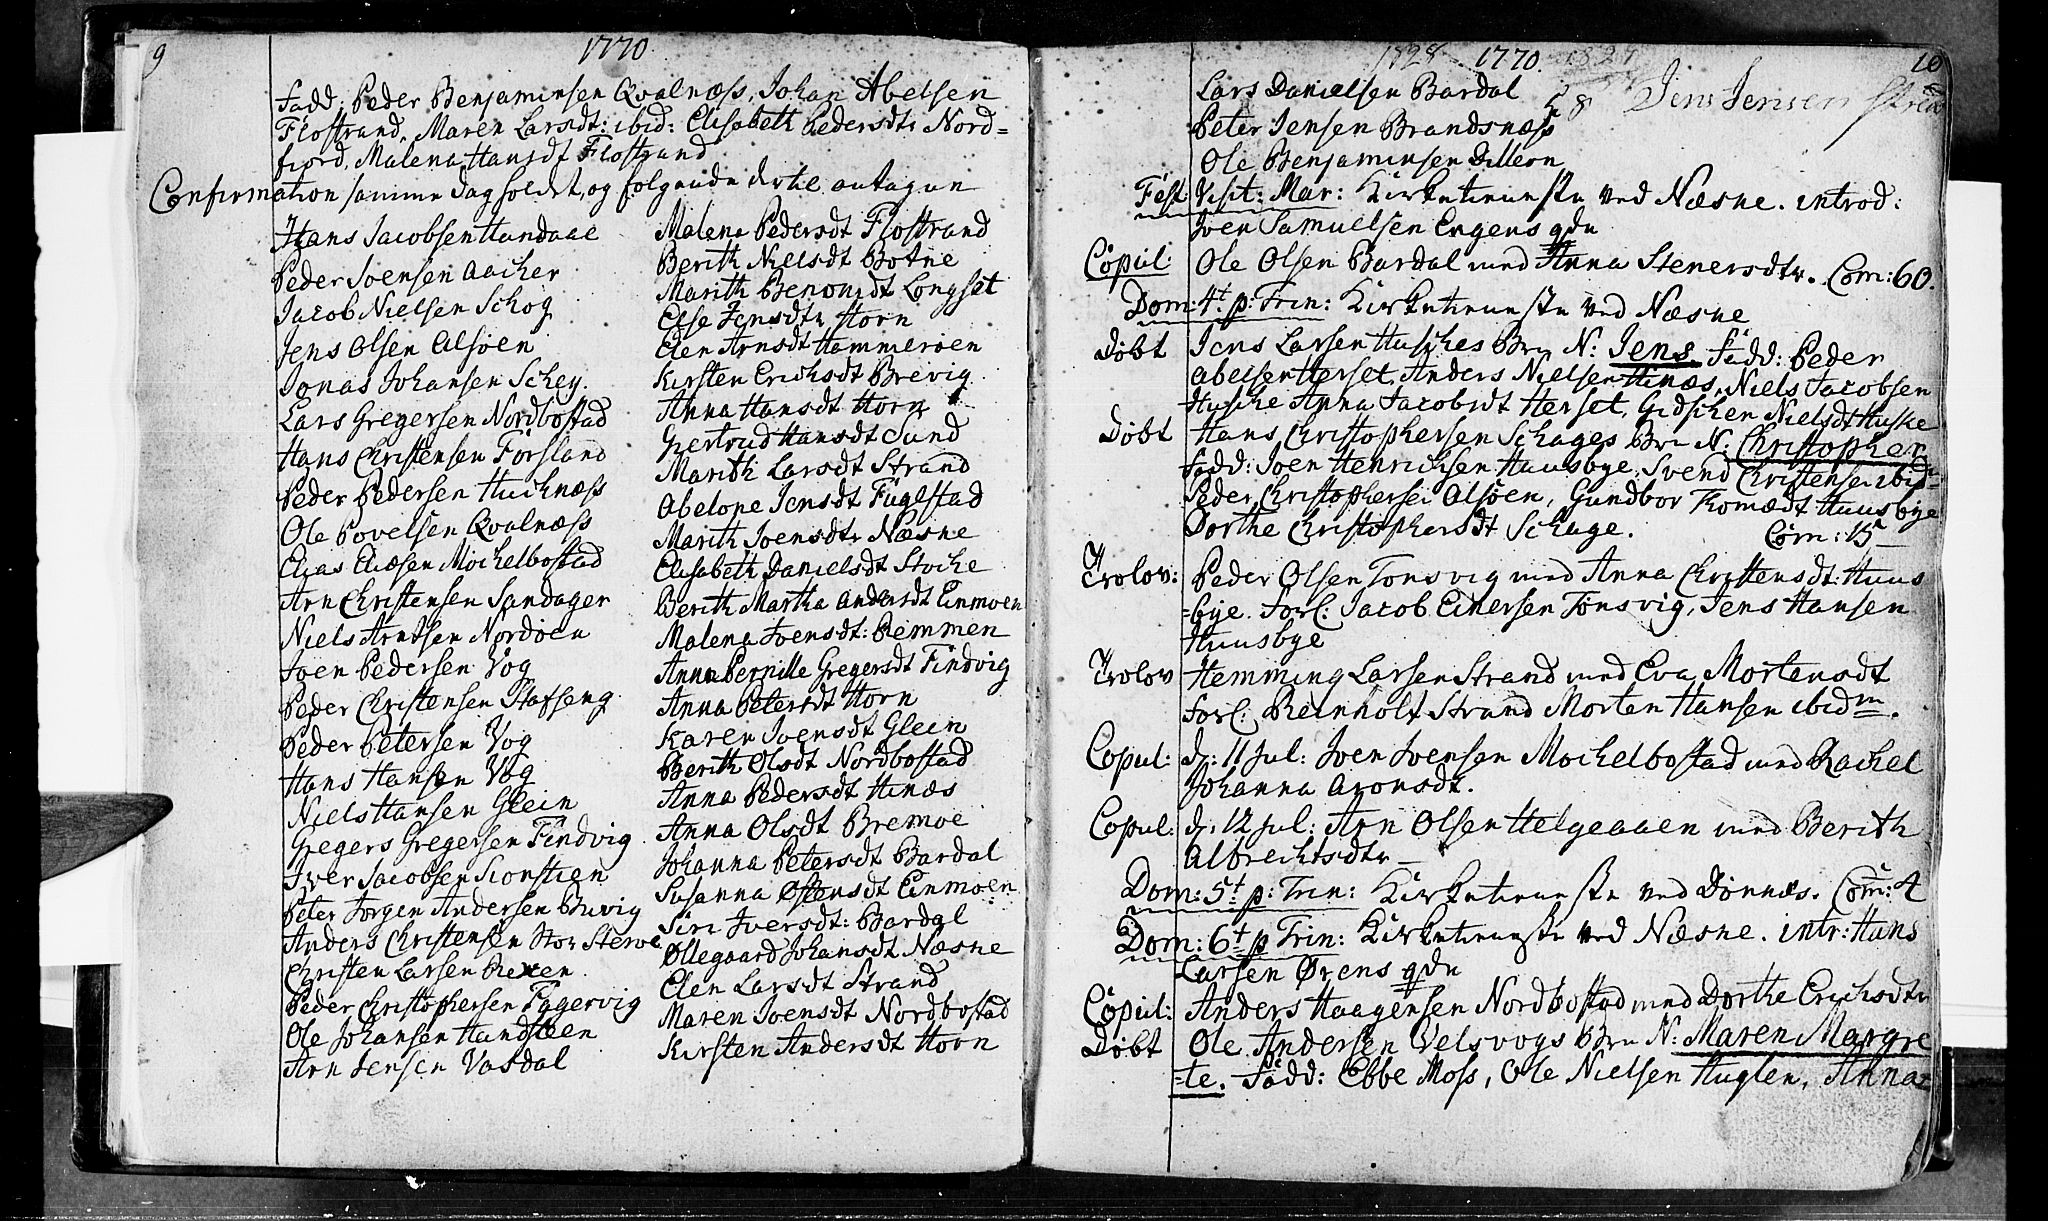 9
1770
Fadd: Peder Benjaminsen Qvalnæss, Johan Abelsen
Flostrand, Maren Larsdt: ibid: Elisabeth Pedersdtr Nord=
fiord, Malena Hansdt Flostrand
Confirmation samme dag holdt, og følgende dertil antagen
Hans Jacobsen Hundaae
Peder Joensen Aacher
Jacob Nielsen Schog
Jens Olsen Alsøen
Jonas Johansen Schey
Lars Gregersen Nordbostad
Hans Christensen Forsland
Peder Pedersen Huchnæss
Ole Povelsen Qvalnæss
Elias Eliæsen Mochelbostad
Arn Christensen Sandager
Niels Arntsen Nordøen
Joen Pedersen Vog
Peder Christensen Stafseng
Peder Petersen Vog
Hans Hansen Vog
Niels Hansen Glein
Gregers Gregersen Findvig
Iver Jacobsen
Peter Jørgen Andersen Buvig
Anders Christensen Stor
Christen Larsen
Peder Christophersen Fagervig
Ole Johansen Hundsleen
Arn Jensen Vasdal
Malena Pedersdt Flostrand
Berith Nielsdt Botne
Marith Benonidt Longset
Else Jensdtr Horn
Elen Arnsdt Hammerøen
Kirsten Erichsdt Brevig
Anna Hansdt Horn
Giertrud Hansdt Sund
Marith Larsdt Strand
Abelone Jensdt Fuglstad
Marith Joensdtr Næsne
Elisabeth Danielsdt Stoche
Berith Martha Andersdt Einmoen
Malena Joensdt: Remmen
Anna Pernille Gregersdt Findvig
Anna Petersdt Horn
Karen Joensdt Glein
Berith Olsdt Nordbostad
Anna Pedersdt Hinæs
Anna Olsdt Bremoe
Johanna Petersdt Bardal
Susanna Østensdt Einmoen
Siri Iversdt: Bardal
Ollegaard Johansdt Næsne
Elen Larsdt Strand
Maren Joensdt Nordbostad
Kirsten Andersdt Horn
1828 1770. 1827
10
Lars Danielsen Bardal
28 Jens Jensen
Peter Jensen Brandsnæss
Ole Benjaminsen Dilleon
Fest Visit: Mar: Kirketieneste ved Næsne. introd:
Iver Samuelsen Engens qdn
Copul: Ole Olsen Bardal med Anna Stenersdtr. Com: 60.
Dom: 4t p: Trin: Kirketieneste ved Næsne
Døbt Jens Larsen Husches Brn N: Jens Fadd: Peder
Abelsen Herset, Anders Nielsen Hinæs, Niels Jacobsen
Husche Anna Jacobsdt Herset, Gidschen Nielsdt Huske
Døbt Hans Christophersen Schages Brn N: Christopher
Fadd: Joen Henrichsen Huusbye, Svend Christensen ibid
Peder Christophersen Alsøen, Gundbor Tomædt Huusbye
Dorthe Christophersdt Schage. Com: 15
Trolov: Peder Olsen Tonsvig med Anna Christensdt: Huus
=bye. Forl: Jacob Einersen Tonsvig, Jens Hansen
Huusbye
Trolov Hemming Larsen Strand med Eva Mortensdt
Forl: Reinholt Strand Morten Hansen ibidm.
Copul: d: 11 Jul: Iver Iversen Mochelbostad med Rachel
Johanna Aronsdt.
Copul: d: 12 Jul: Arn Olsen Helgeaaen med Berith
Albrechtsdtr
Dom: 5t p: Trin: Kirketieneste ved Dønnæs. Com: 4
Dom: 6t p Trin: Kirketieneste ved Næsne. intr: Hans
Larsen Ørens qdn
Copul: Anders Haagensen Nordbostad med Dorthe Erichsdtr
Døbt Ole Andersen Velsvogs Brn N: Maren Margre
=te. Fadd: Ebbe Moss, Ole Nielsen Huglen, Anna